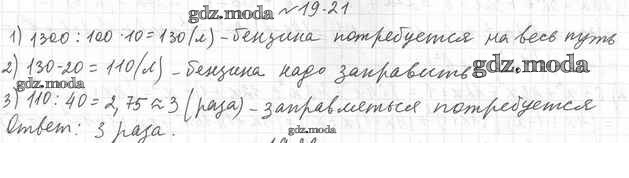 gdz.moda №19-21
1) 1300 : 100 · 10 = 130 (л) - бензина потребуется на весь путь
2) 130 - 20 = 110 (л) - бензина надо заправить gdz.moda
gdz.moda
3) 110 : 40 = 2,75 ≈ 3 (раза) - заправляться потребуется
Ответ: 3 раза. gdz.moda